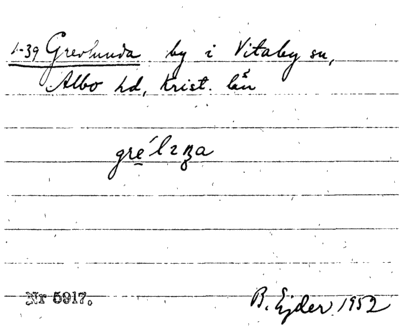 1-39 Grevlunda by i Vitaby sn,
Albo hd, Krist. län
Nr 5917.
B. Ejder 1952